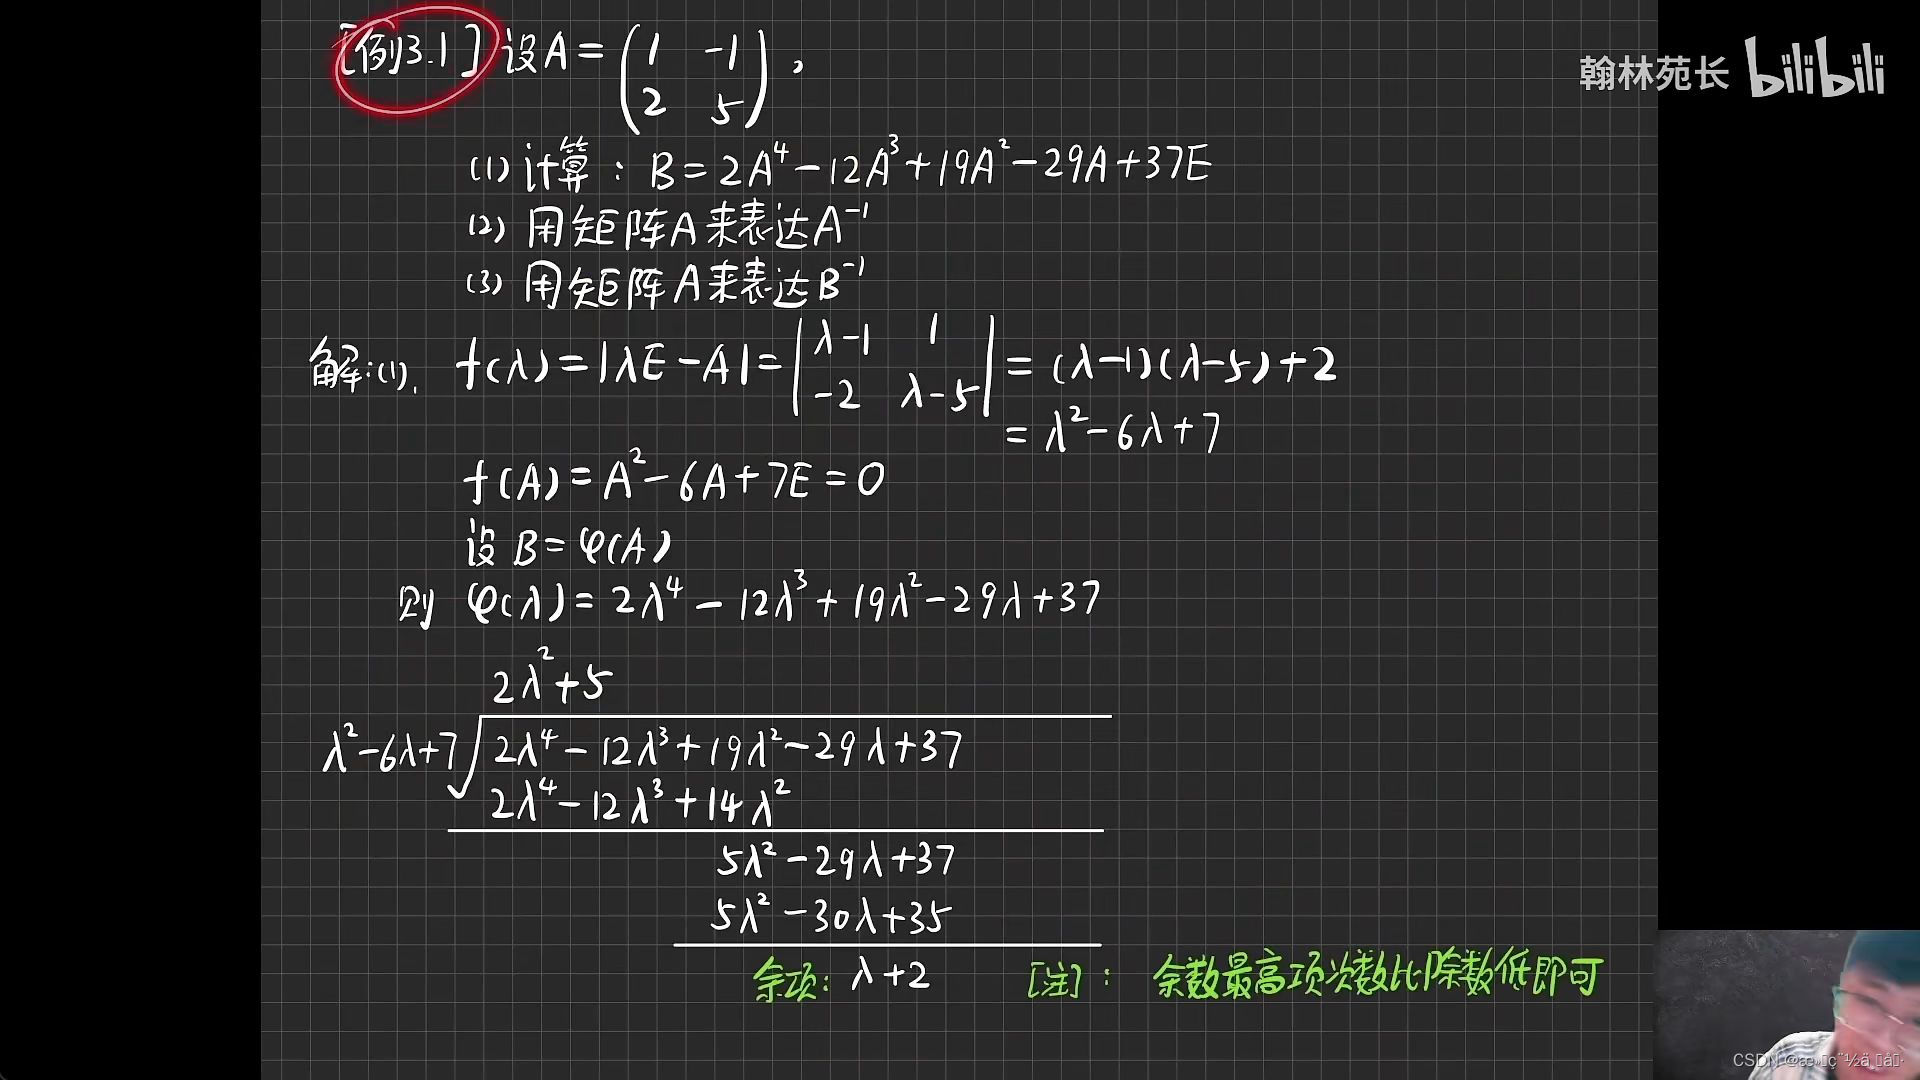 [例3.1] 设A = (1 -1
2 5),
翰林苑长 bilibili
(1) 计算: B = 2A⁴ - 12A³ + 19A² - 29A + 37E
(2) 用矩阵A来表达A⁻¹
(3) 用矩阵A来表达B⁻¹
解:(1). f(λ) = |λE - A| = |λ-1 1
-2 λ-5| = (λ-1)(λ-5)+2
= λ² - 6λ + 7
f(A) = A² - 6A + 7E = 0
设 B = φ(A)
则 φ(λ) = 2λ⁴ - 12λ³ + 19λ² - 29λ + 37
2λ² + 5
λ² - 6λ + 7 √ 2λ⁴ - 12λ³ + 19λ² - 29λ + 37
2λ⁴ - 12λ³ + 14λ²
5λ² - 29λ + 37
5λ² - 30λ + 35
余项: λ + 2 [注]: 余数最高项次数比除数低即可
CSDN